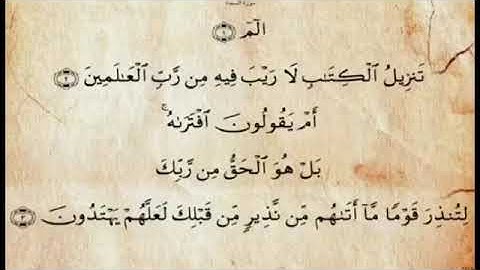 سورة السجدة
الٓمٓ ١
تَنزِيلُ ٱلْكِتَـٰبِ لَا رَيْبَ فِيهِ مِن رَّبِّ ٱلْعَـٰلَمِينَ ٢
أَمْ يَقُولُونَ ٱفْتَرَىٰهُ ۚ
بَلْ هُوَ ٱلْحَقُّ مِن رَّبِّكَ
لِتُنذِرَ قَوْمًا مَّآ أَتَىٰهُم مِّن نَّذِيرٍ مِّن قَبْلِكَ لَعَلَّهُمْ يَهْتَدُونَ ٣